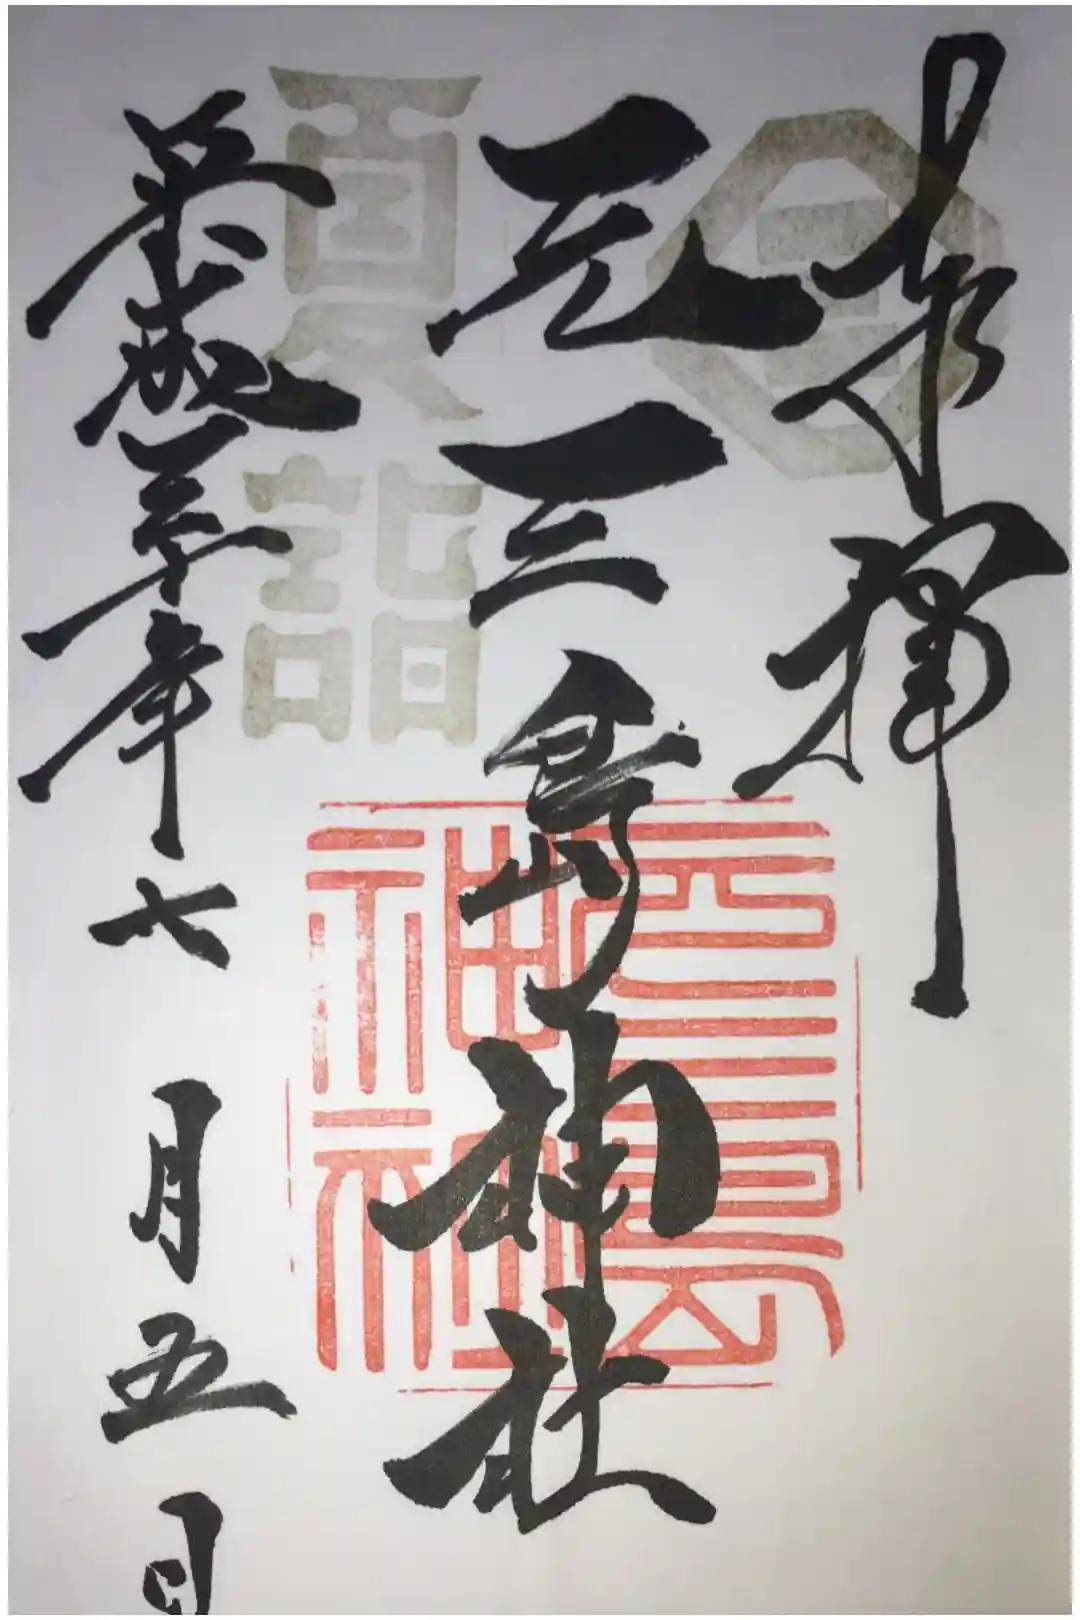 奉拝
元三島神社
夏詣
平成三十年七月五日
元三島
神社